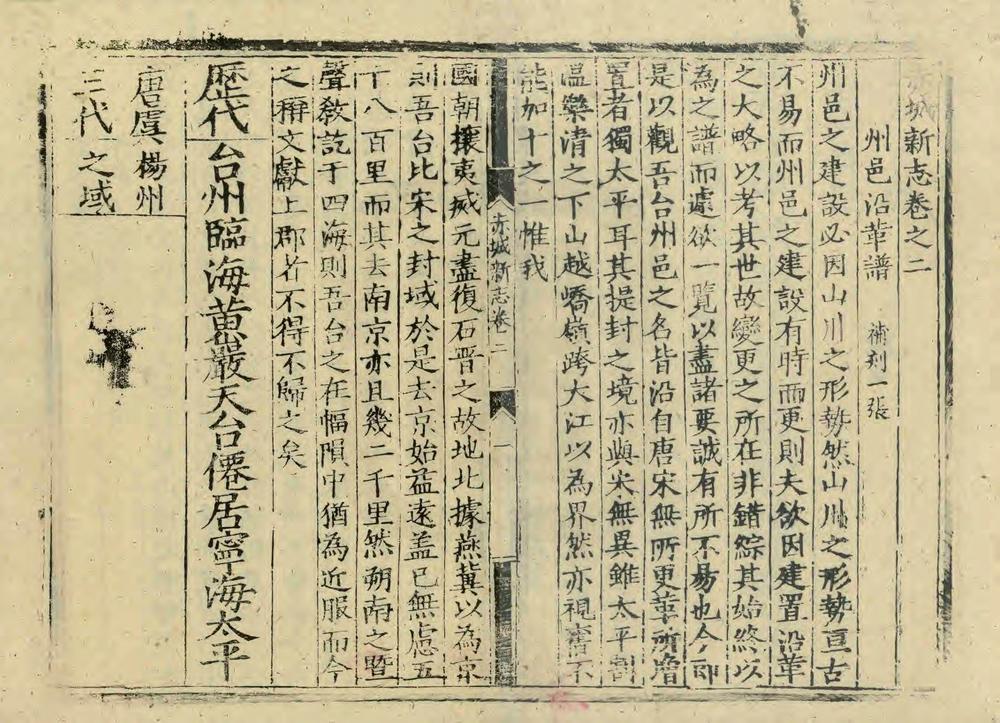 赤城新志卷之二
州邑沿革譜 補刻一張
州邑之建設必因山川之形勢然山川之形勢亘古
不易而州邑之建設有時而更則夫欲因建置沿革
之大略以考其世故變更之所在非錯綜其始終以
為之譜而遽欲一覽以盡諸要誠有所不易也今即
是以觀吾台州邑之名皆沿自唐宋無所更革所增
置者獨太平耳其提封之境亦與宋無異雖太平割
溫樂清之下山越嶠嶺跨大江以為界然亦視舊不
能加十之一惟我
赤城新志卷二 一
國朝攘夷威元盡復石晉之故地北據燕冀以為京
則吾台比宋之封域於是去京始益遠盖已無慮五
十八百里而其去南京亦且幾二千里然朔南之暨
聲敎訖于四海則吾台之在幅隕中猶為近服而今
之稱文獻上郡者不得不歸之矣
歷代 台州臨海黄巖天台僊居寧海太平
唐虞楊州
三代之域